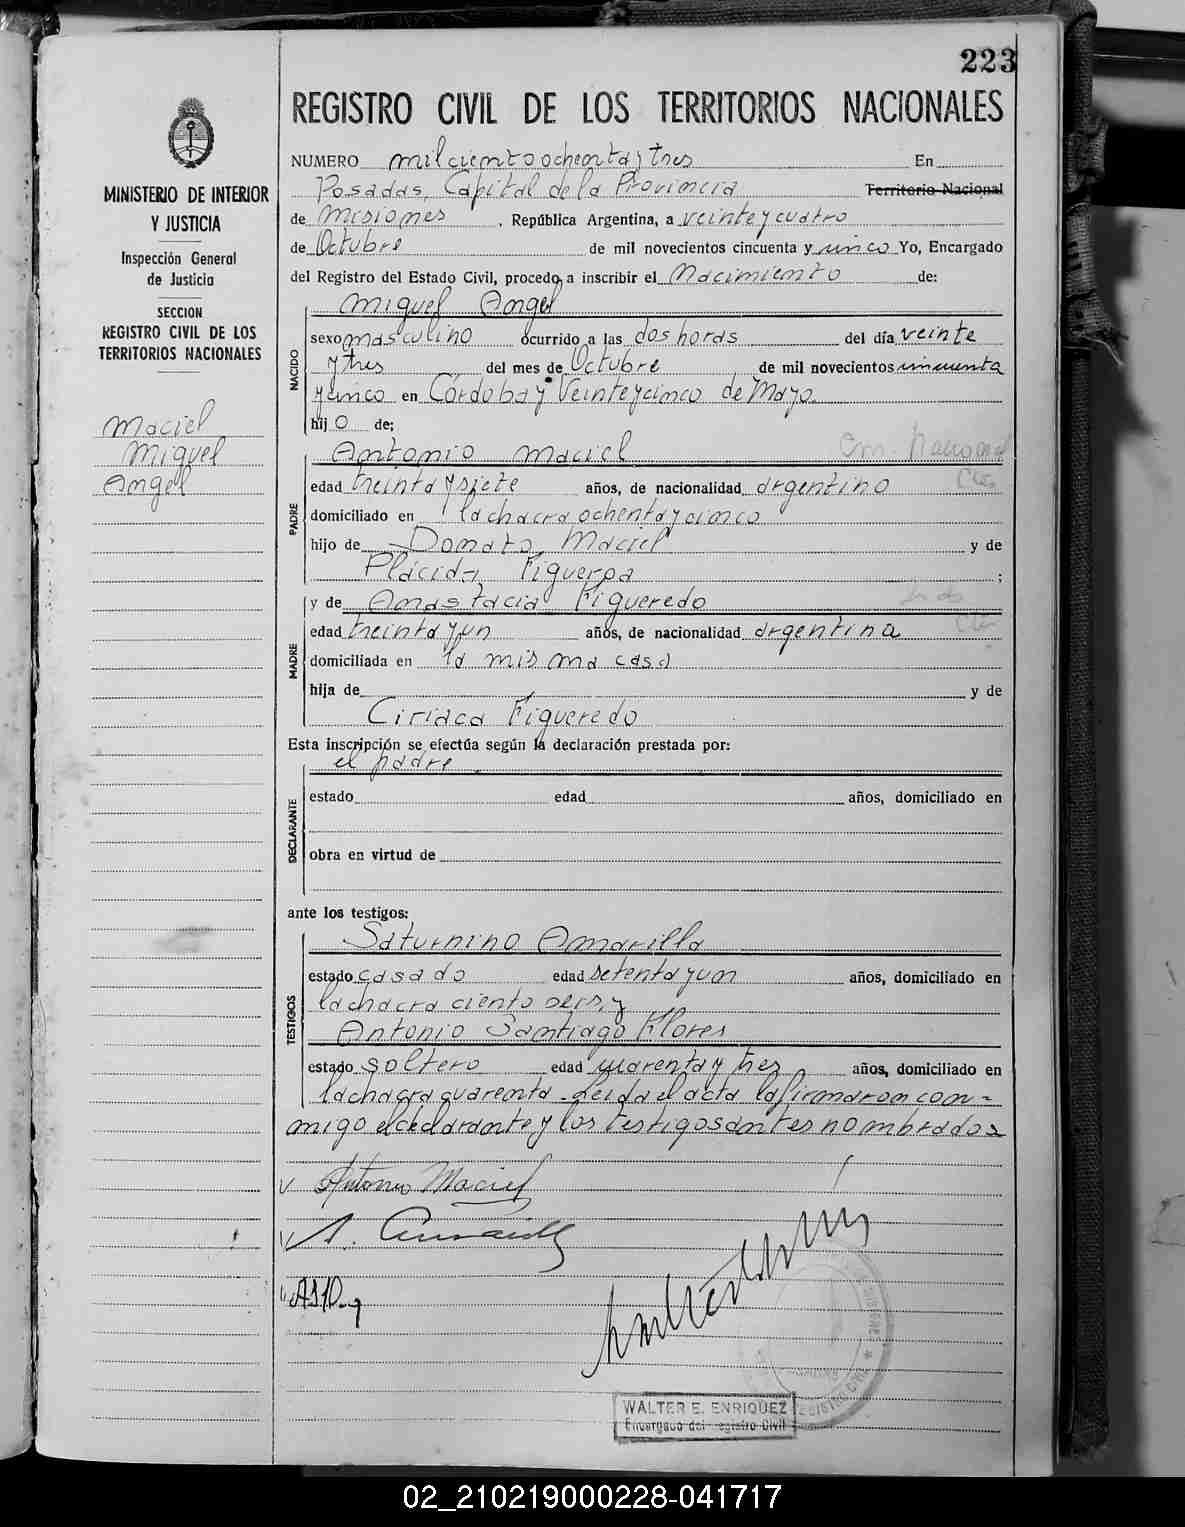 223
REGISTRO CIVIL DE LOS TERRITORIOS NACIONALES
MINISTERIO DE INTERIOR
Y JUSTICIA
Inspección General
de Justicia
SECCION
REGISTRO CIVIL DE LOS
TERRITORIOS NACIONALES
Maciel
Miguel
Angel
NUMERO mil ciento ochenta y tres En
Posadas, Capital de la Provincia Territorio Nacional
de Misiones, República Argentina, a veinte y cuatro
de Octubre de mil novecientos cincuenta y unico Yo, Encargado
del Registro del Estado Civil, procedo a inscribir el Nacimiento de:
NACIDO
Miguel Angel
sexo masculino ocurrido a las dos horas del día veinte
y tres del mes de Octubre de mil novecientos cincuenta
y unico en Córdoba y Veinteycinco de Mayo.
hijo de;
PADRE
Antonio Maciel
edad treinta y siete años, de nacionalidad argentino
domiciliado en la chacra ochenta y cinco
hijo de Donato Maciel y de
Plácida Figueroa ;
MADRE
y de Anastacia Figueredo
edad treinta y un años, de nacionalidad argentina
domiciliada en la misma casa
hija de y de
Ciriaca Figueredo
Esta inscripción se efectúa según la declaración prestada por:
DECLARANTE
el padre
estado edad años, domiciliado en
obra en virtud de
ante los testigos:
TESTIGOS
Saturnino Amarilla
estado casado edad setenta y un años, domiciliado en
la chacra ciento seis, y
Antonio Santiago Flores
estado soltero edad cuarenta y tres años, domiciliado en
la chacra cuarenta. Leida el acta la firmaron con-
migo el declarante y los testigos antes nombrados
Antonio Maciel
A. Amarilla
WALTER E. ENRIQUEZ
Encargado del Registro Civil
02_210219000228-041717